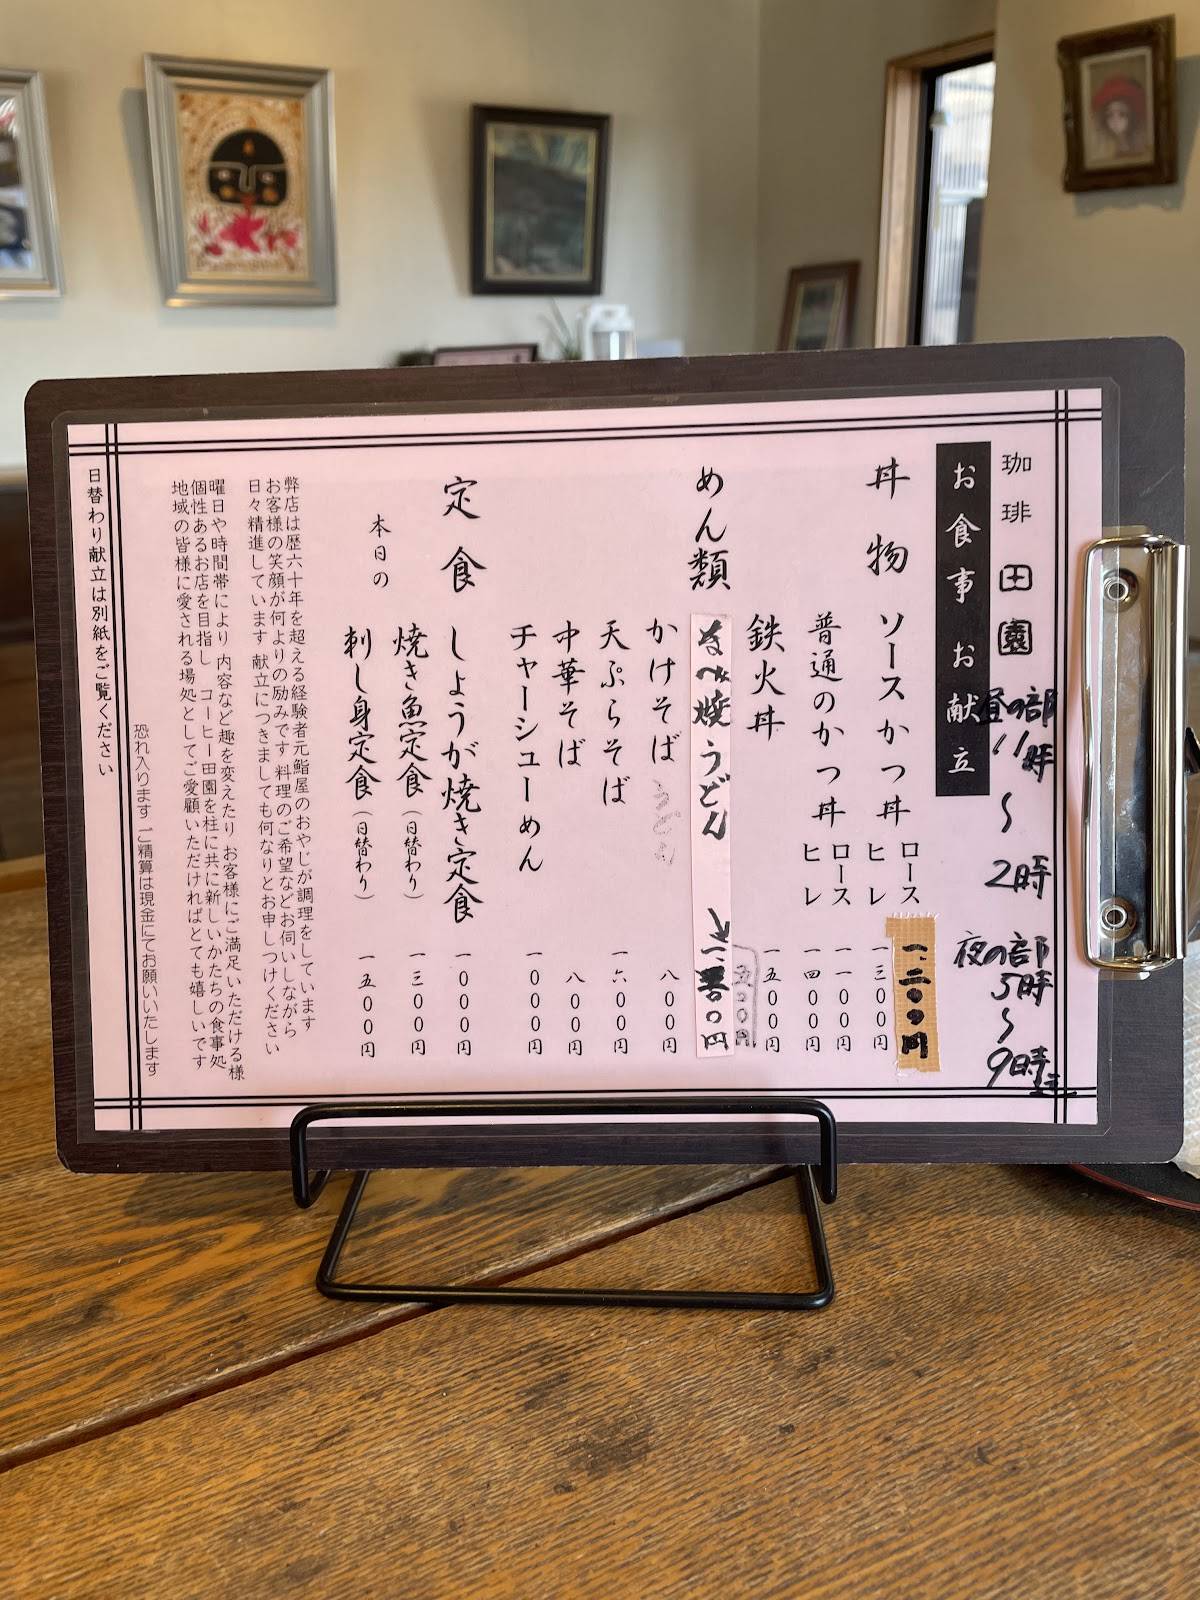 珈琲 田園
昼の部
11時
〜
2時
夜の部
5時
〜
9時
お食事 お献立
丼物
ソースかつ丼 ロース 一、二〇〇円
ヒレ 一三〇〇円
普通のかつ丼 ロース 一一〇〇円
ヒレ 一四〇〇円
鉄火丼 一五〇〇円
めん類
なべ焼うどん
かけそば うどん 八〇〇円
天ぷらそば 一六〇〇円
中華そば 八〇〇円
チャーシューめん 一〇〇〇円
定食
しょうが焼き定食 一〇〇〇円
本日の
焼き魚定食(日替わり) 一三〇〇円
刺し身定食(日替わり) 一五〇〇円
弊店は歴六十年を超える経験者元鮨屋のおやじが調理をしています
お客様の笑顔が何よりの励みです 料理のご希望などお伺いしながら
日々精進しています 献立につきましても何なりとお申しつけください
曜日や時間帯により 内容など趣を変えたり お客様にご満足いただける様
個性あるお店を目指し コーヒー田園を柱に共に新しいかたちの食事処
地域の皆様に愛される場処としてご愛顧いただければとても嬉しいです
恐れ入ります ご精算は現金にてお願いいたします
日替わり献立は別紙をご覧ください